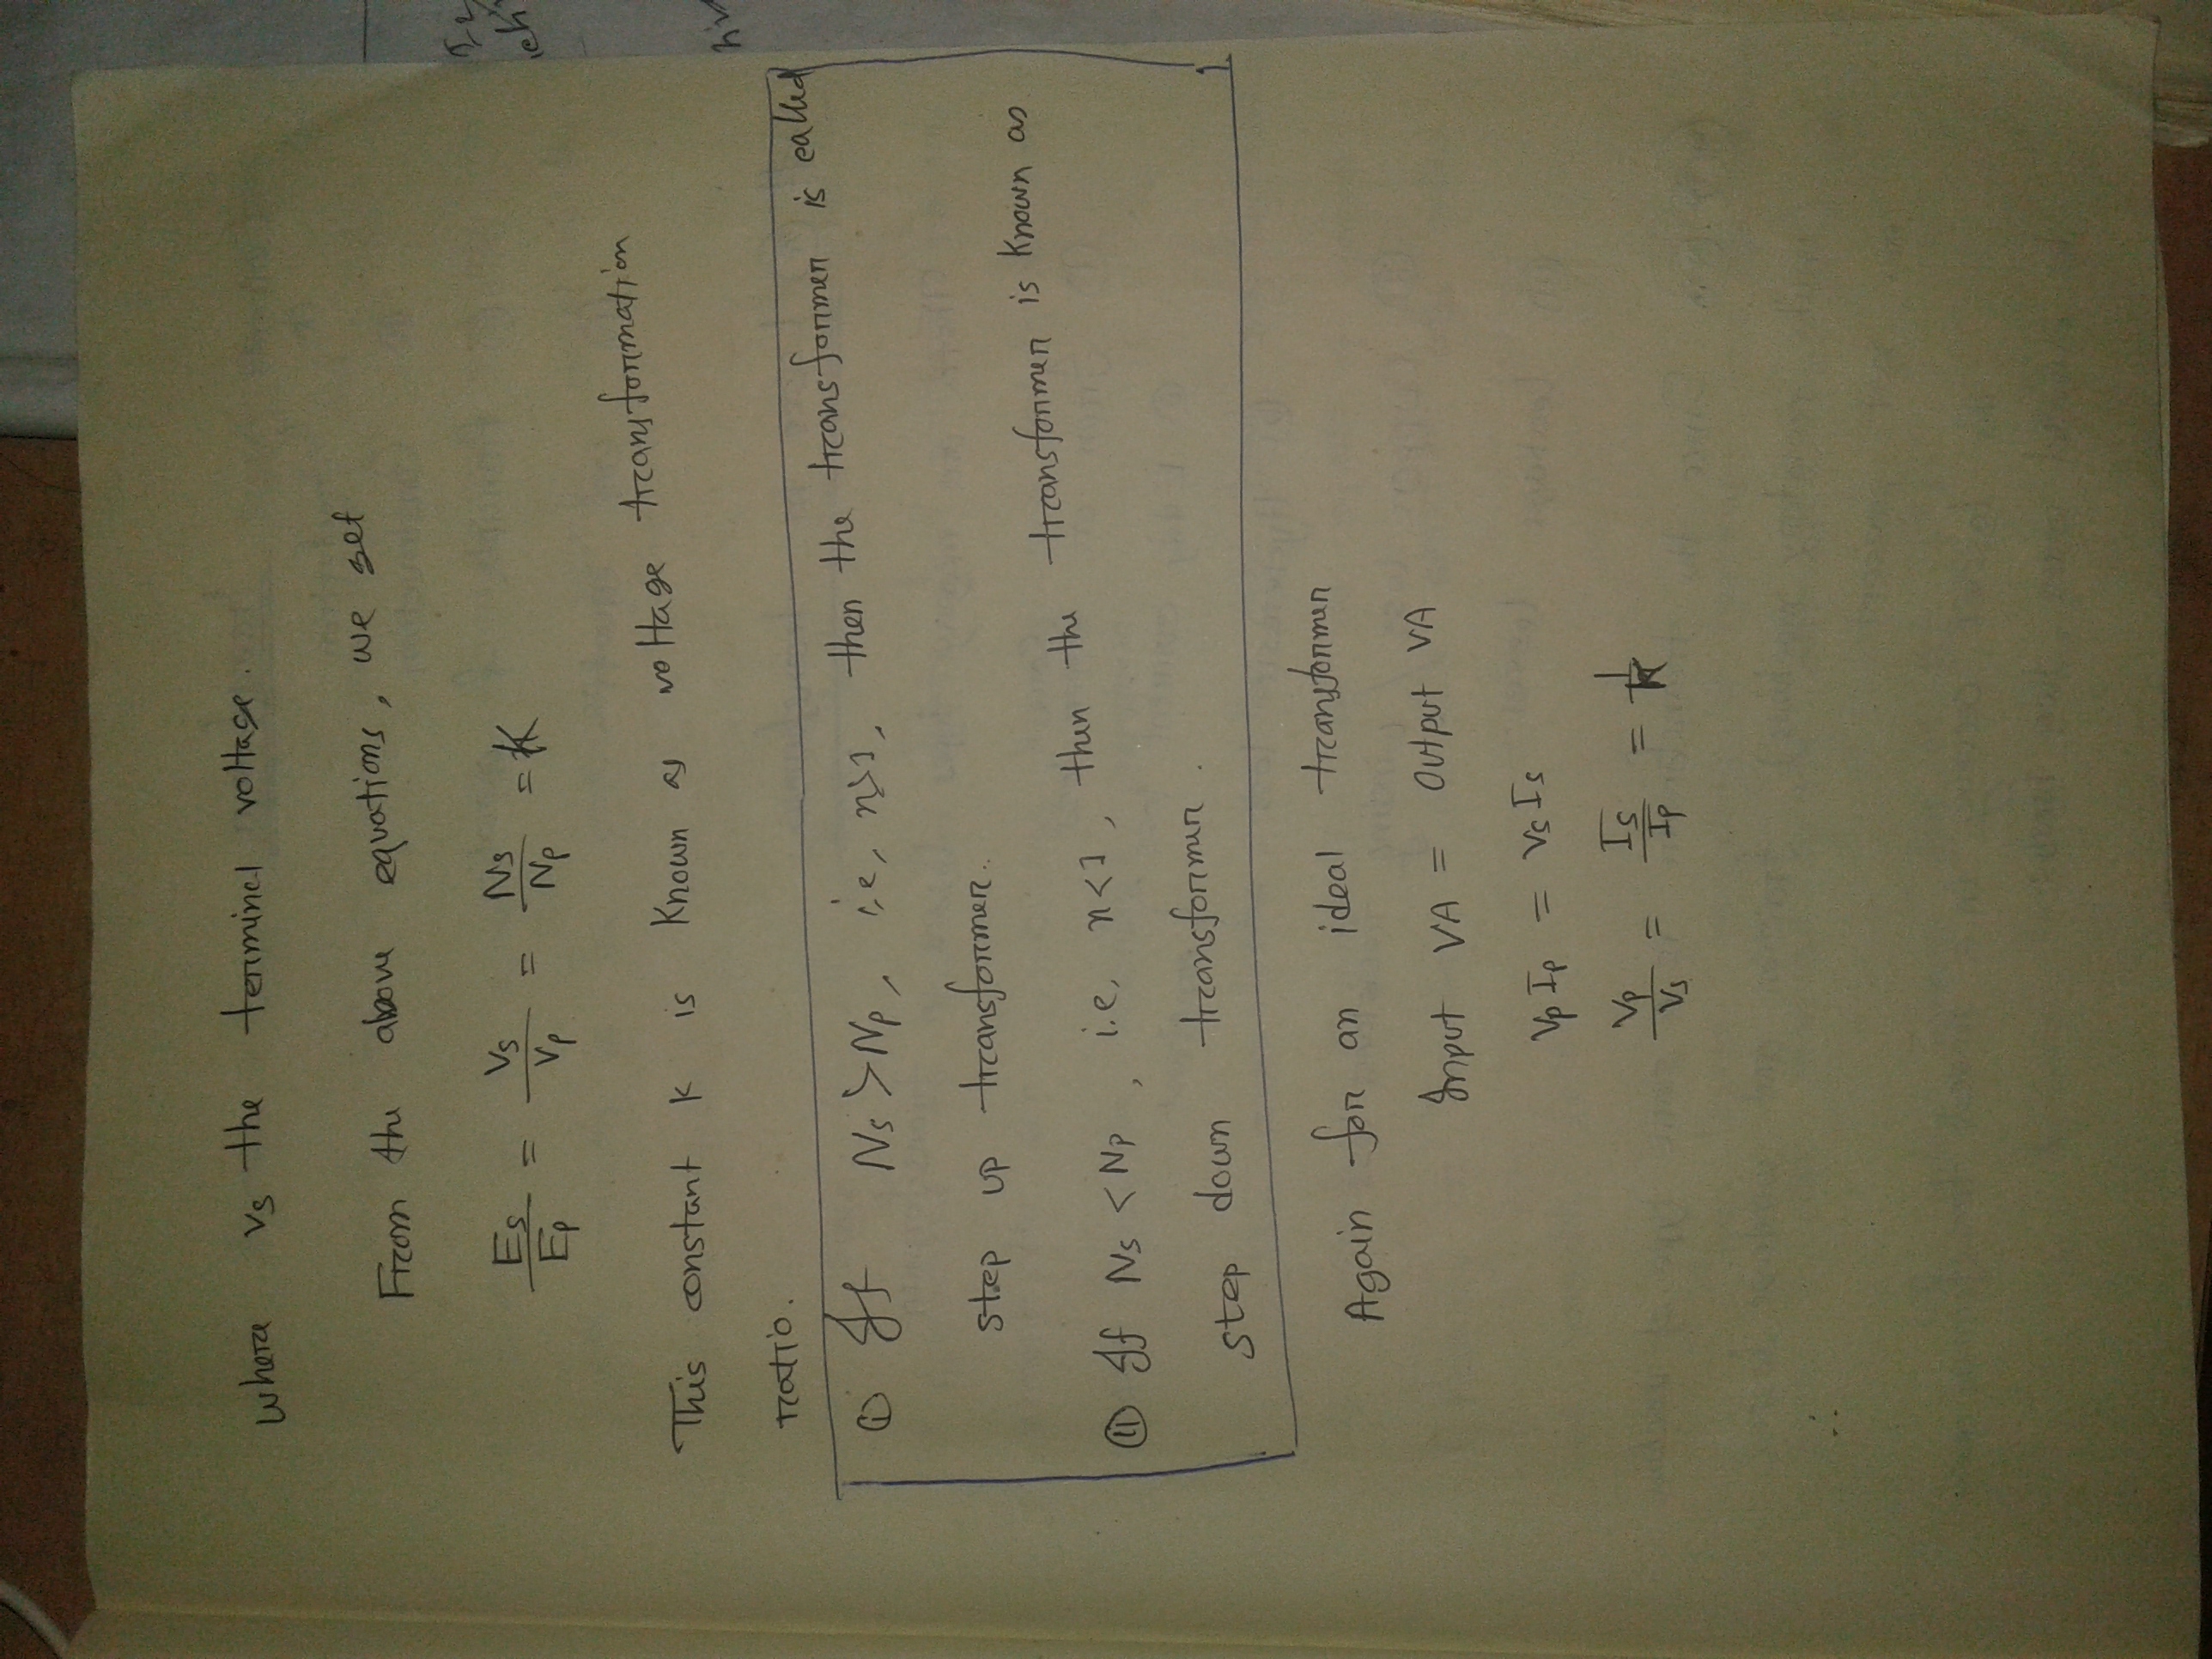 where vs the terminal voltage.
From the above equations, we get
Es/Ep = Vs/Vp = Ns/Np = K
This constant K is known as voltage transformation
ratio.
(i) If Ns > Np, i.e, n>1, then the transformer is called
step up transformer.
(ii) If Ns < Np, i.e, n<1, then the transformer is known as
step down transformer.
Again for an ideal transformer
Input VA = Output VA
Vp Ip = Vs Is
Vp/Vs = Is/Ip = 1/K
∴